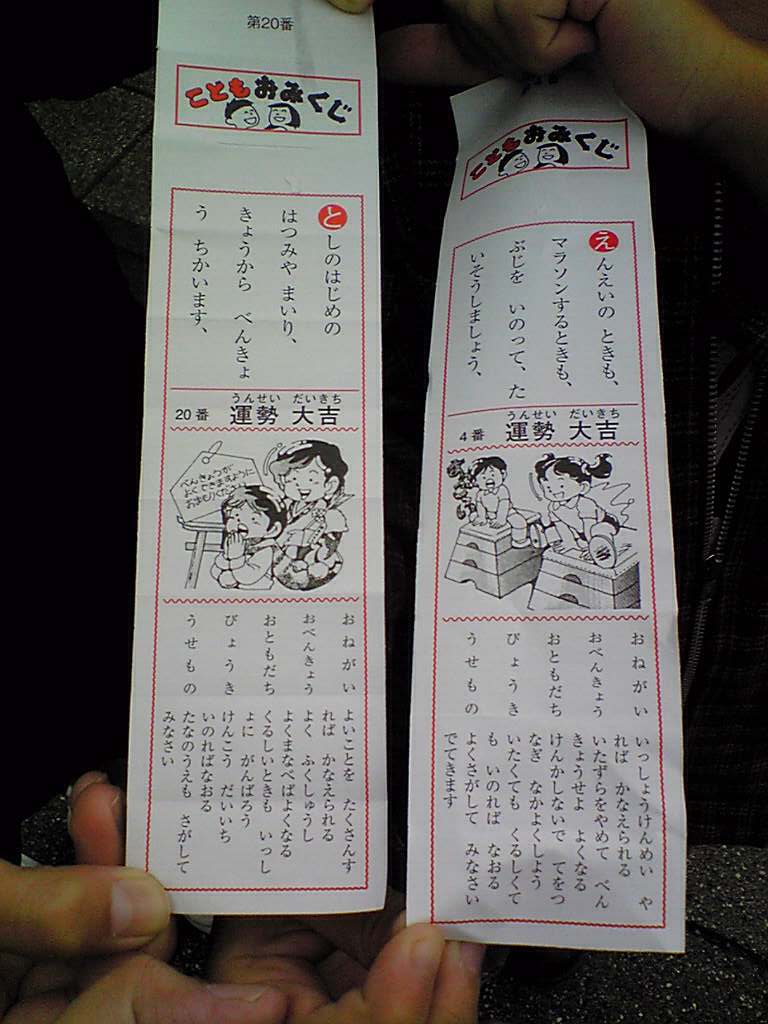 第20番
こどもおみくじ
としのはじめの
はつみや まいり、
きょうから べんきょ
う ちかいます、
20番 運勢 大吉
うんせい だいきち
べんきょうが
よくできますように
おまもりください
おねがい
よいことを たくさんす
れば かなえられる
おべんきょう
よく ふくしゅうし
よくまなべばよくなる
おともだち
くるしいときも いっし
ょに がんばろう
びょうき
けんこう だいいち
いのればなおる
うせもの
たなのうえも さがして
みなさい
こどもおみくじ
えんえいの ときも、
マラソンするときも、
ぶじを いのって、た
いそうしましょう、
4番 運勢 大吉
うんせい だいきち
おねがい
いっしょうけんめい や
れば かなえられる
おべんきょう
いたずらをやめて べん
きょうせよ よくなる
おともだち
けんかしないで てをつ
なぎ なかよくしよう
びょうき
いたくても くるしくて
も いのれば なおる
うせもの
よくさがして みなさい
でてきます